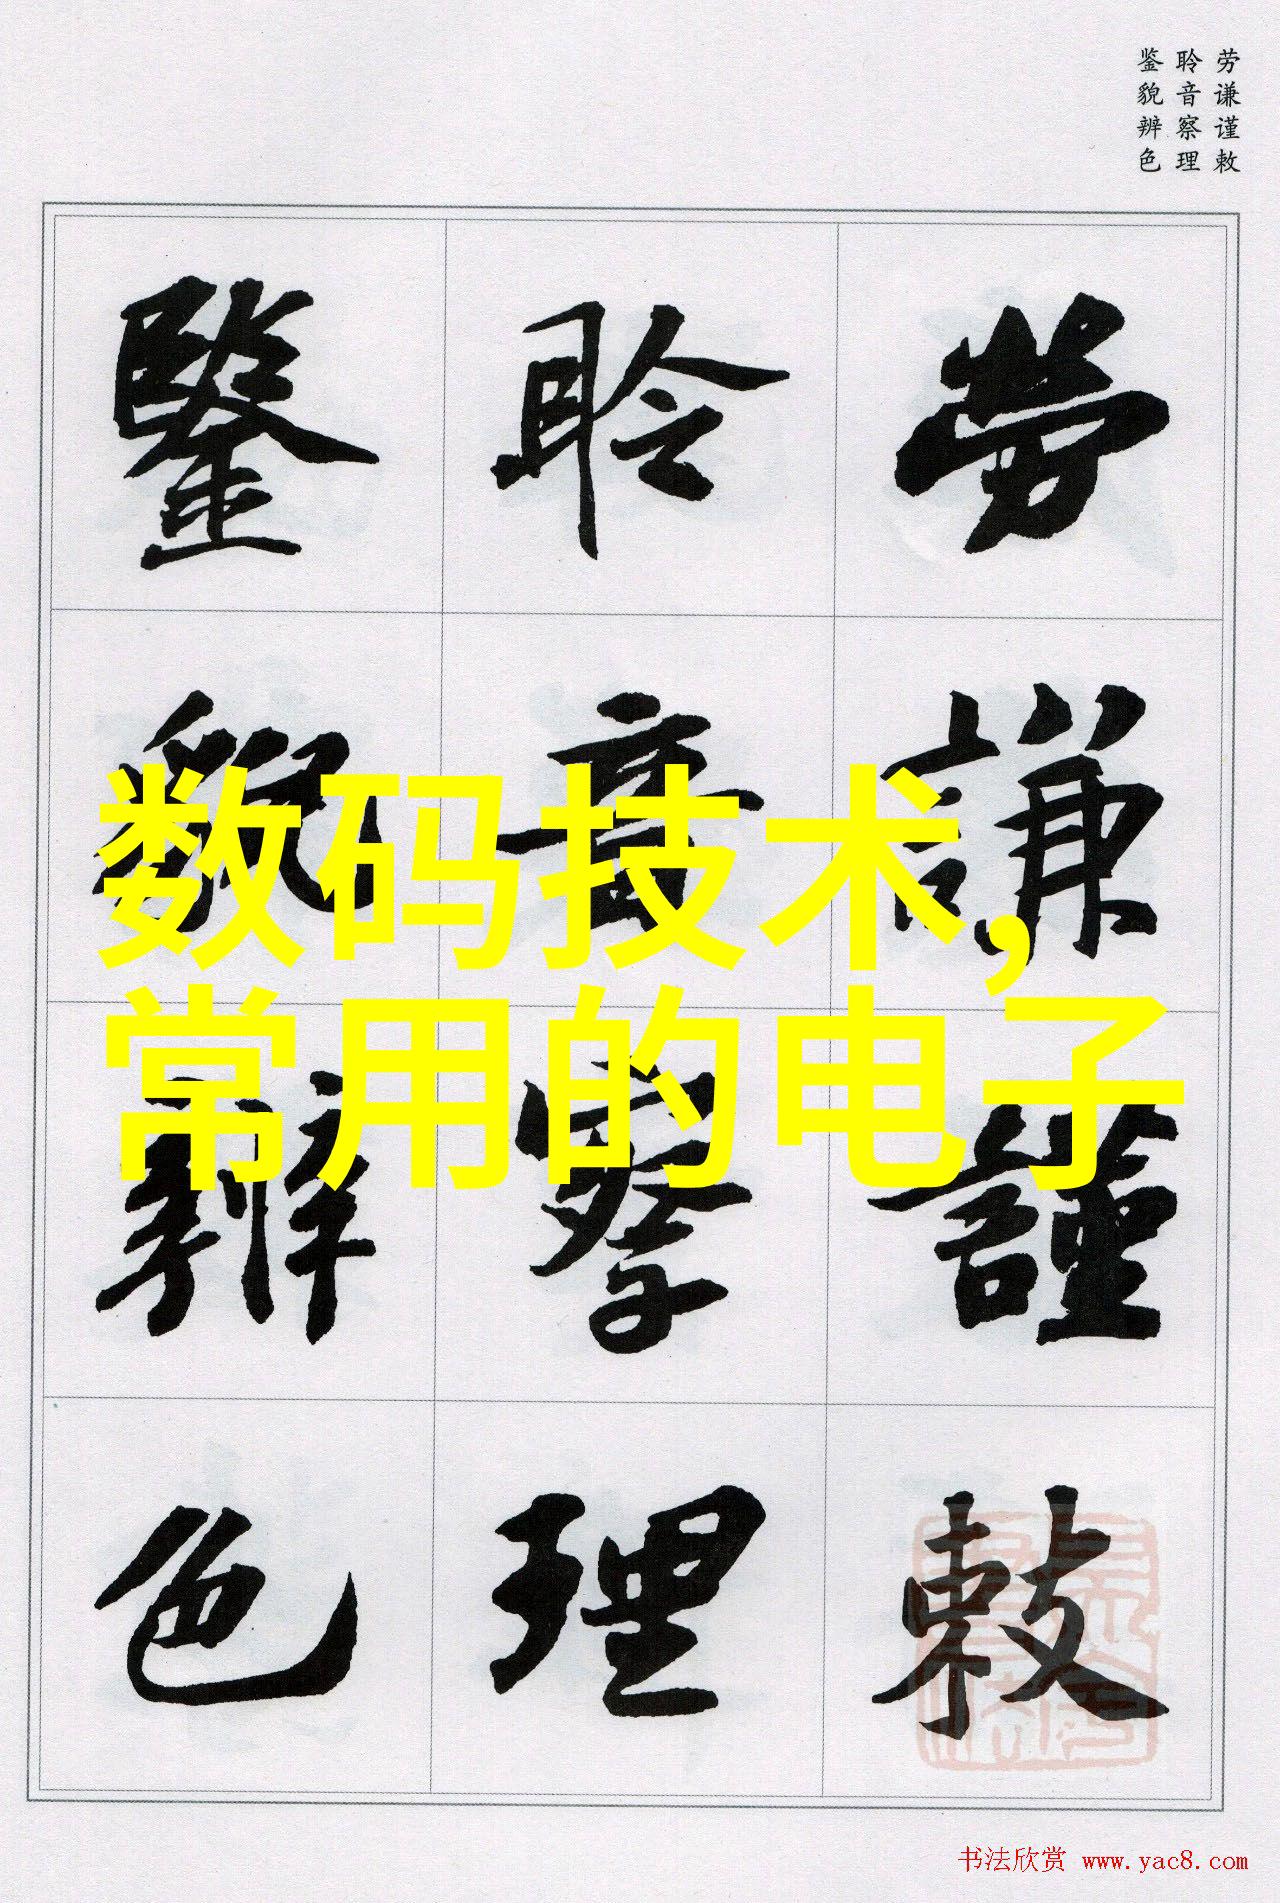 劳谦谨敕
聆音察理
鉴貌辨色
勞謙謹敕
聆音察理
鑒貌辨色
数码技术,
常用的电子
书法欣赏 www.yac8.com